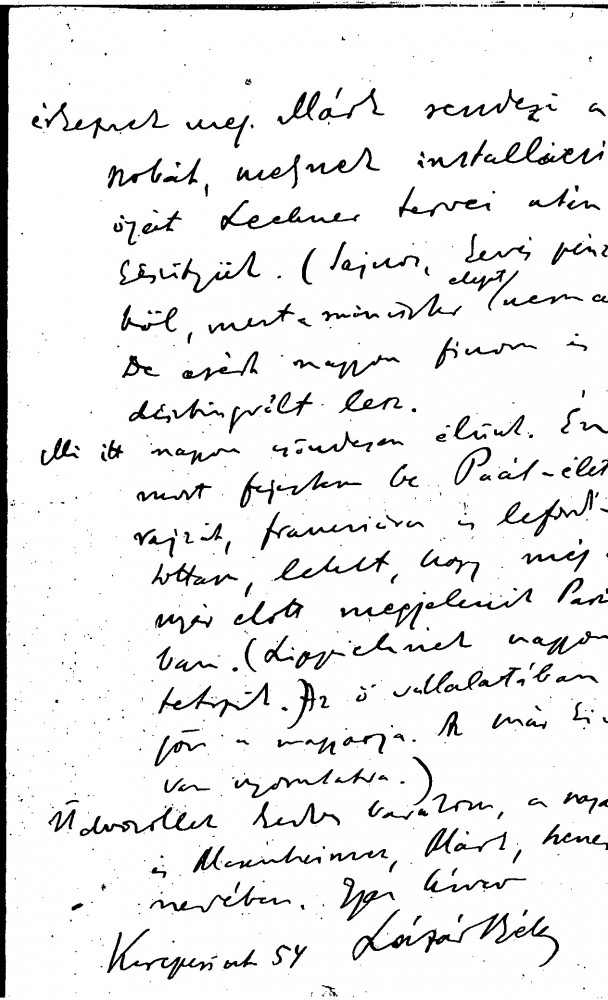 érkeznek meg. Márk rendezi a
szobát, melynek installációi
Lechner tervei után
készítjük. (Sajnos, kevés pénz
ből, mert a miniszter elept nem a
De azért nagyon finom és
disztingvált lesz.
Mi itt nagyon csöndesen élünk. Én
most fejeztem be Paál-élet
rajzát, franciára is lefordí-
tottam, lehet, hogy még
nyár előtt megjelenik Pári
ban. (Lippichnek nagyon
tetszik.) Az ő vállalatában
jön a magyarja. Az már ki
van nyomtatva.)
Üdvözöllek kedves barátom, a
és Mannheimer, Márk,
nevében. Igaz híved
Kerepesi út 54 Lázár Béla